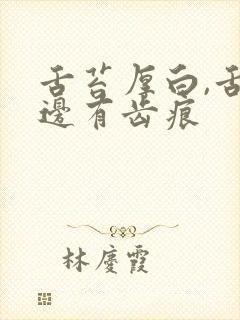 舌苔厚白,舌
邊有齿痕
林慶霞